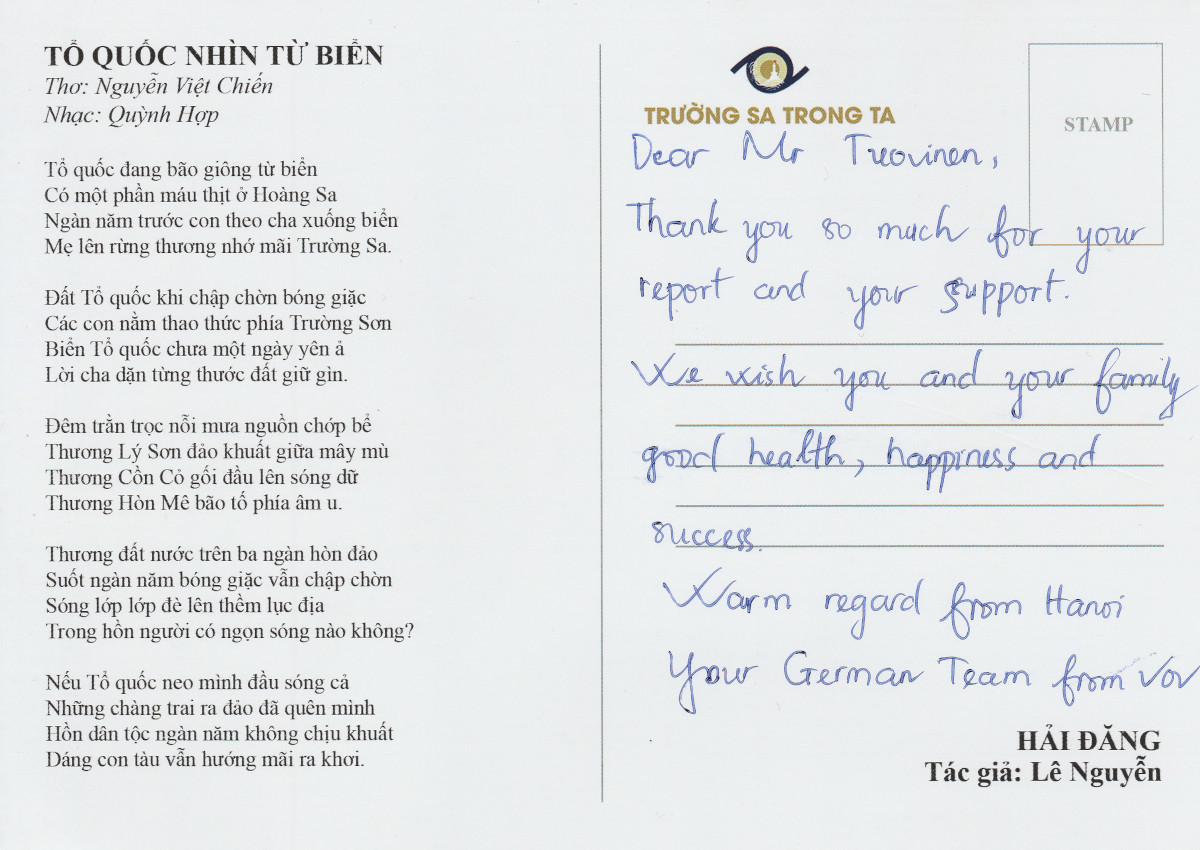 TỔ QUỐC NHÌN TỪ BIỂN
Thơ: Nguyễn Việt Chiến
Nhạc: Quỳnh Hợp
Tổ quốc đang bão giông từ biển
Có một phần máu thịt ở Hoàng Sa
Ngàn năm trước con theo cha xuống biển
Mẹ lên rừng thương nhớ mãi Trường Sa.
Đất Tổ quốc khi chập chờn bóng giặc
Các con nằm thao thức phía Trường Sơn
Biển Tổ quốc chưa một ngày yên ả
Lời cha dặn từng thước đất giữ gìn.
Đêm trằn trọc nỗi mưa nguồn chớp bể
Thương Lý Sơn đảo khuất giữa mây mù
Thương Cồn Cỏ gối đầu lên sóng dữ
Thương Hòn Mê bão tố phía âm u.
Thương đất nước trên ba ngàn hòn đảo
Suốt ngàn năm bóng giặc vẫn chập chờn
Sóng lớp lớp đè lên thềm lục địa
Trong hồn người có ngọn sóng nào không?
Nếu Tổ quốc neo mình đầu sóng cả
Những chàng trai ra đảo đã quên mình
Hồn dân tộc ngàn năm không chịu khuất
Dáng con tàu vẫn hướng mãi ra khơi.
TRƯỜNG SA TRONG TA
STAMP
Dear Mr
Thank you so much for your
report and your support.
We wish you and your family
good health, happiness and
success.
Warm regard from Hanoi
Your German Team from VOV
HẢI ĐĂNG
Tác giả: Lê Nguyễn